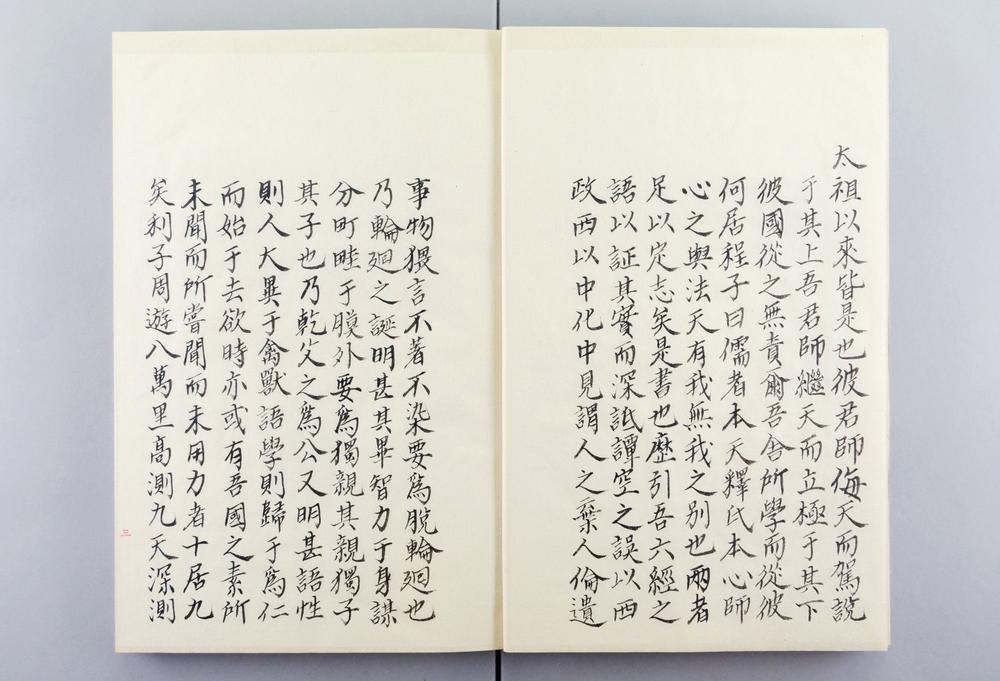 太祖以來皆是也彼君師侮天而駕說
于其上吾君師繼天而立極于其下
彼國從之無責爾吾舍所學而從彼
何居程子曰儒者本天釋氏本心師
心之與法天有我無我之别也兩者
足以定志矣是書也歷引吾六經之
語以証其實而深詆譚空之誤以西
政西以中化中見謂人之棄人倫遺
事物猥言不著不染要爲脫輪廻也
乃輪廻之誕明甚其畢智力于身謀
分町畦于膜外要爲獨親其親獨子
其子也乃乾父之爲公又明甚語性
則人大異于禽獸語學則歸于爲仁
而始于去欲時亦或有吾國之素所
未聞而所嘗聞而未用力者十居九
矣利子周遊八萬里高測九天深測
三